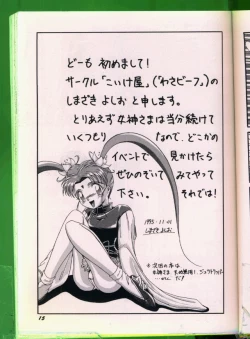 どーも 初めまして!
サークル「こいけ屋」(「わさビーフ」)の
しまざき よしお と申します。
とりあえず女神さまは当分続けて
いくつもり なので、どこかの
イベントで 見かけたら
ぜひのぞいて みてやって
下さい。 それでは!
1993.11.01
しまざき よしお
15